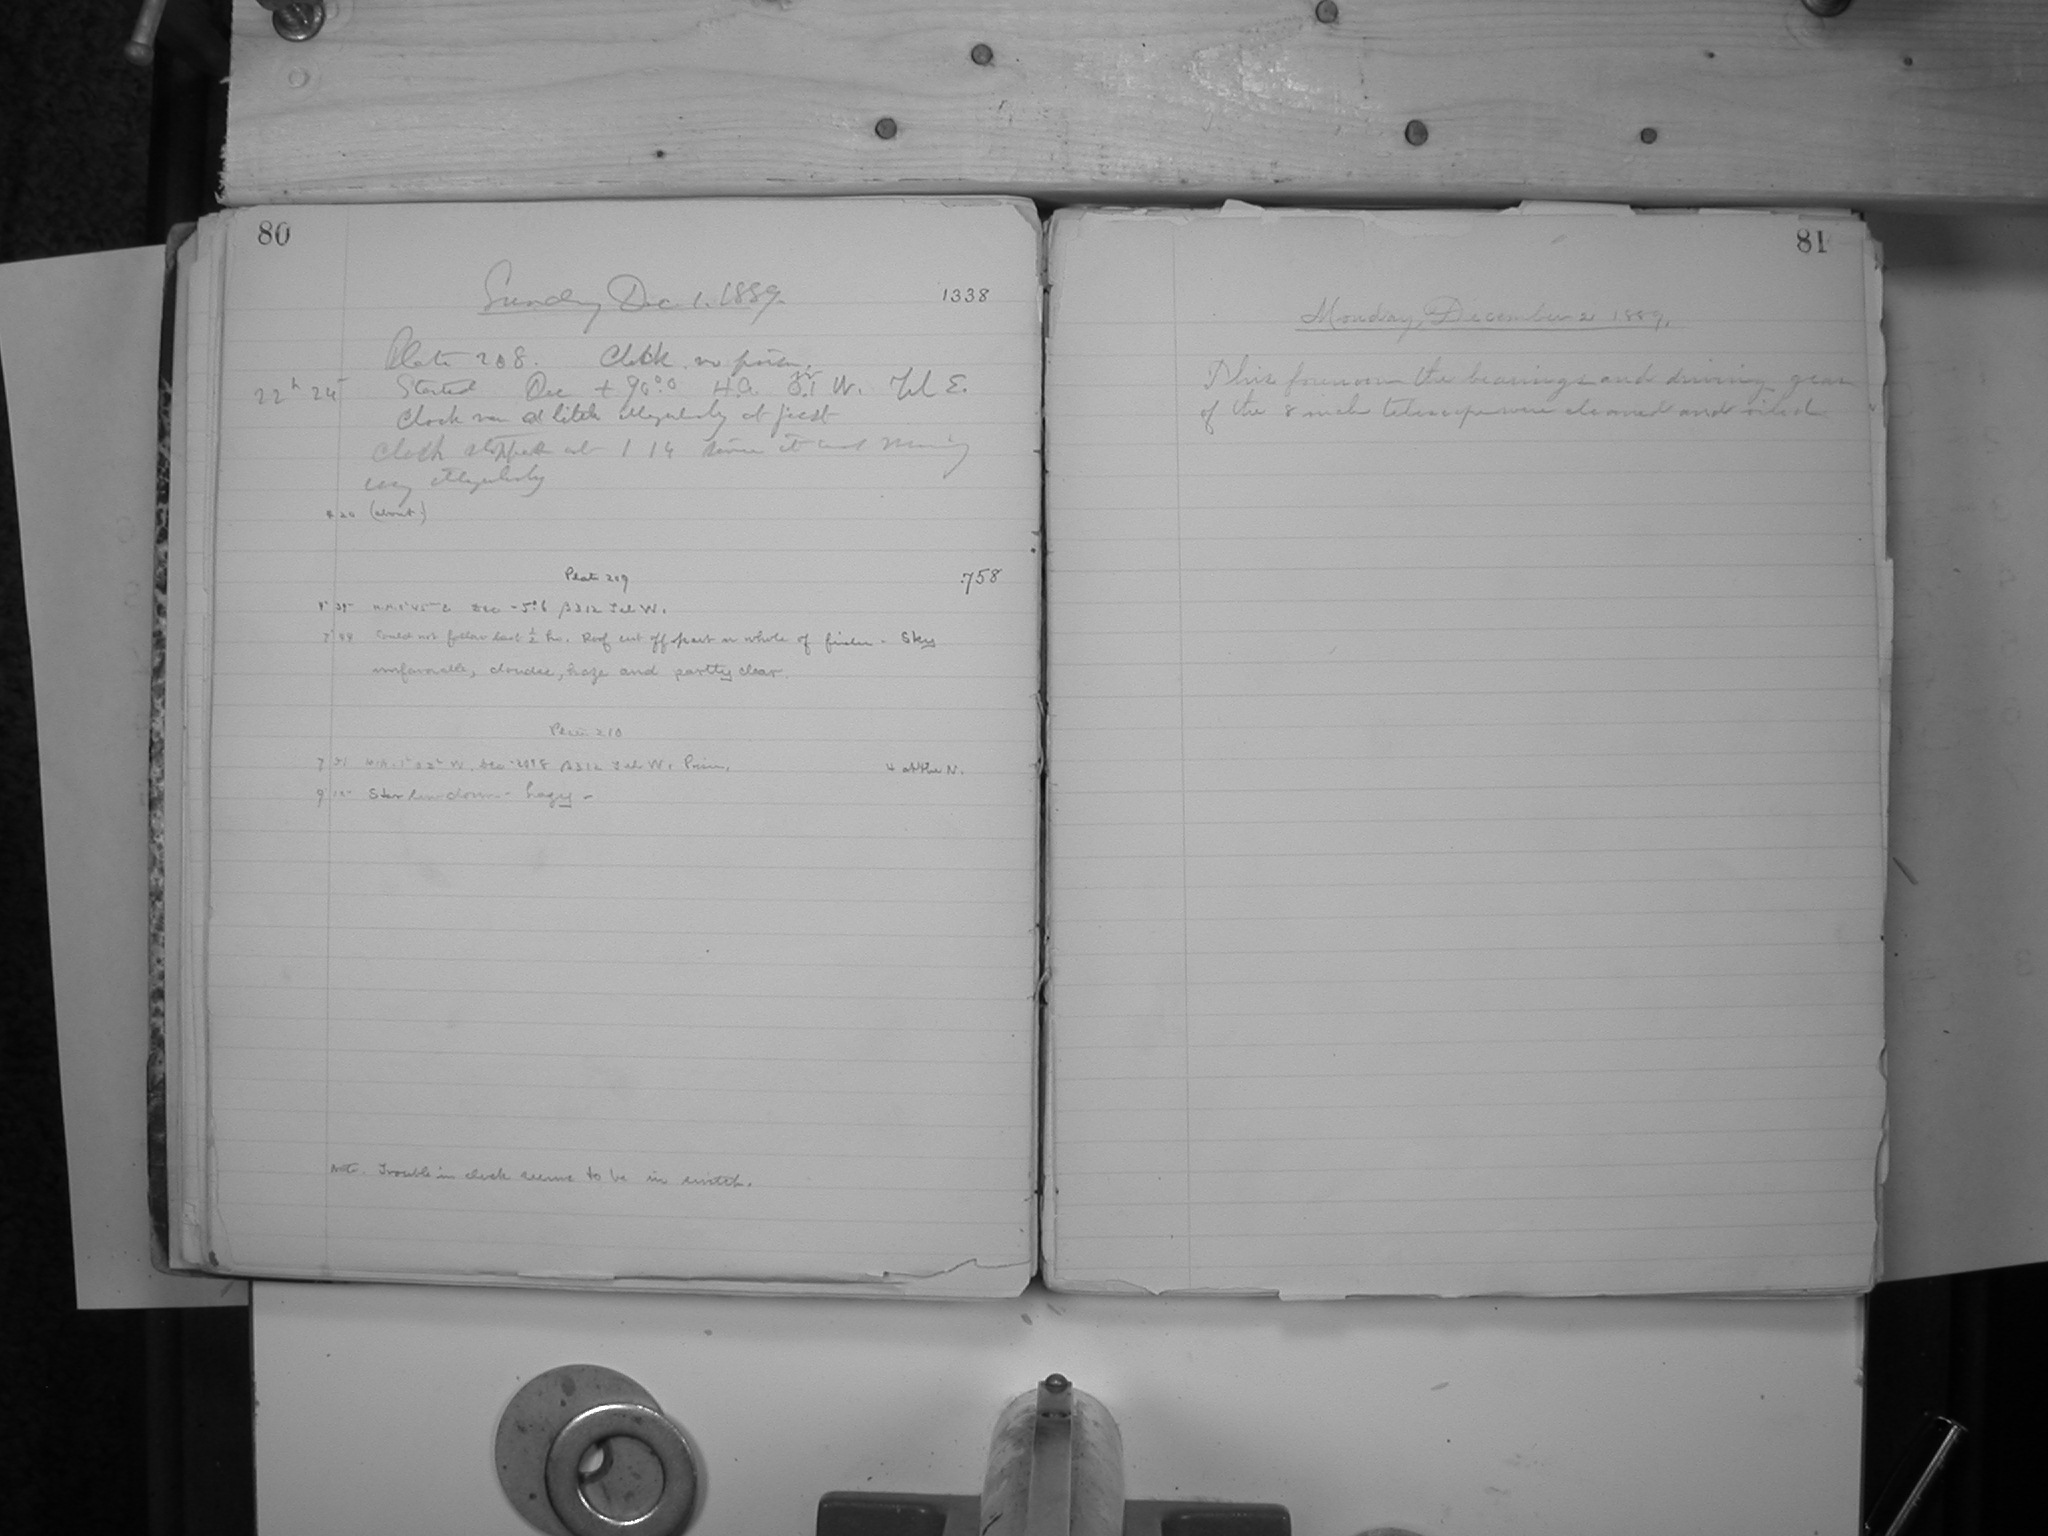 80
Sunday Dec. 1. 1889.
1338
Plate 208. Clock no prism.
22h 24 Started Dec +90°.0 H.A. W. Tel E.
Clock ran a little irregularly at first
Clock stopped at 1 14 since it was running
very irregularly
20 (about.)
Plate 209
758
Dec -5°.6 B312 Tel W.
Could not follow last ½ hr. Roof cut off part or whole of finder - Sky
unfavorable, cloudse, haze and partly clear.
Plate 210
7 51 H.A. 1h W. Dec B312 Tel W. Prism.
4 at the N.
9 Star low down - hazy -
Note. Trouble in clock seems to be in switch.
81
Monday, December 2 1889.
This forenoon the bearings and driving gear
of the 8 inch telescope were cleaned and oiled